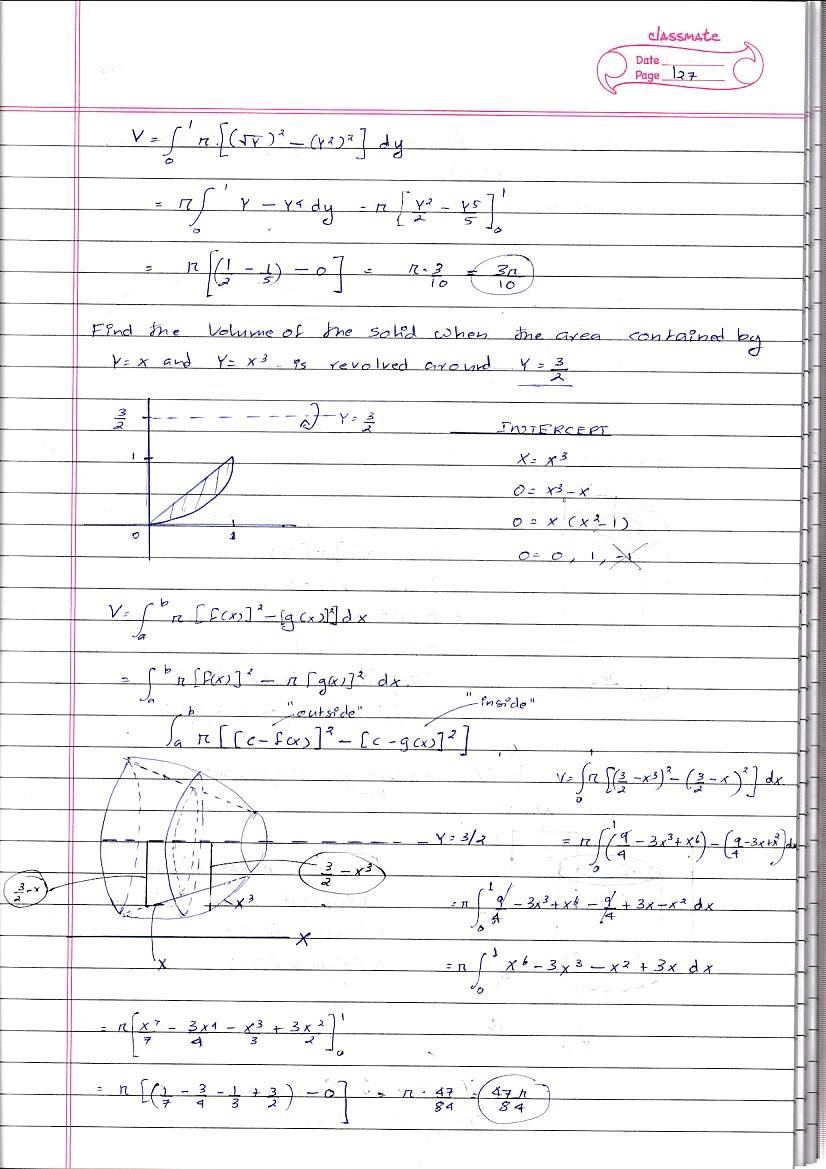 classmate
Date
Page 127
V = ∫₀¹ π [(√Y)² − (Y²)²] dy
= π ∫₀¹ Y − Y⁴ dy = π [Y²/2 − Y⁵/5]₀¹
= π [(1/2 − 1/5) − 0] = π · 3/10 = 3π/10
Find the Volume of the solid when the area contained by
Y = x and Y = x³ is revolved around Y = 3/2
3/2
Y = 3/2
1
0
1
INTERCEPT
x = x³
0 = x³ − x
0 = x (x² − 1)
0 = 0, 1, −1
V = ∫ₐᵇ π [f(x)]² − [g(x)]²] dx
= ∫ₐᵇ π [f(x)]² − π [g(x)]² dx
"outside" "inside"
∫ₐᵇ π [[c − f(x)]² − [c − g(x)]²]
V = ∫₀¹ π [(3/2 − x³)² − (3/2 − x)²] dx
Y = 3/2
= π ∫₀¹ (9/4 − 3x³ + x⁶) − (9/4 − 3x + x²) dx
3/2 − x
3/2 − x³
x³
x
X
= π ∫₀¹ 9/4 − 3x³ + x⁶ − 9/4 + 3x − x² dx
= π ∫₀¹ x⁶ − 3x³ − x² + 3x dx
= π [x⁷/7 − 3x⁴/4 − x³/3 + 3x²/2]₀¹
= π [(1/7 − 3/4 − 1/3 + 3/2) − 0] = π · 47/84 = 47π/84